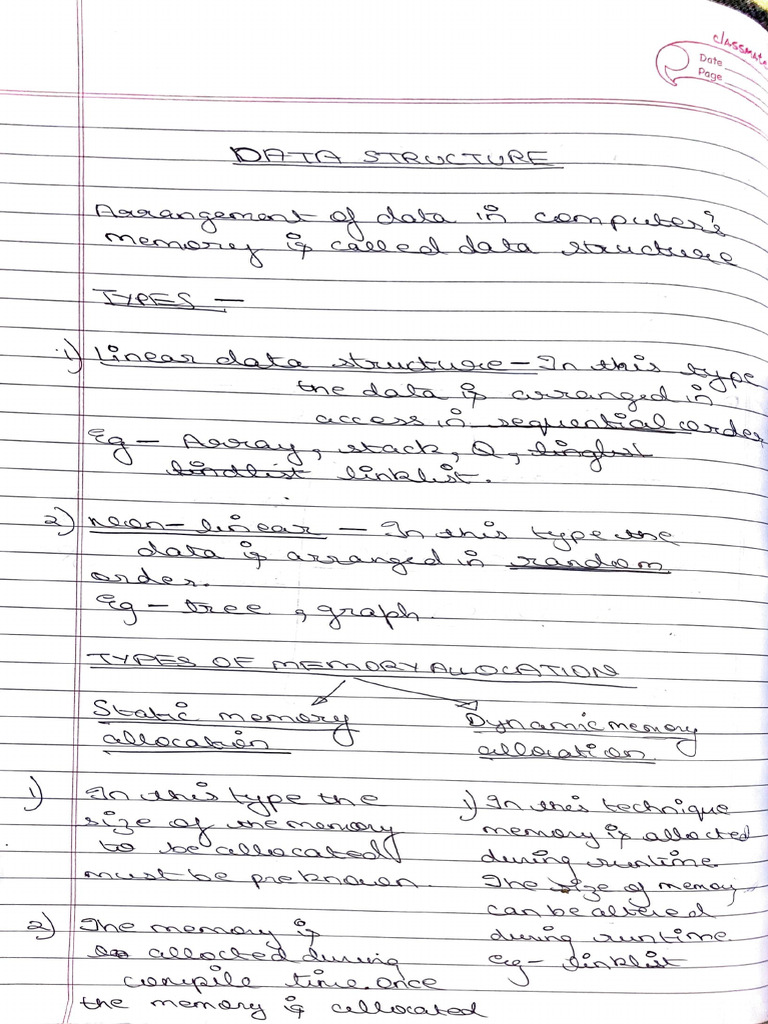 classmate
Date
Page
DATA STRUCTURE
Arrangement of data in computer's
memory is called data structure
TYPES -
1) Linear data structure - In this type
the data is arranged in
access in sequential order
Eg - Array, stack, Q, linglist
lindlist linklist.
2) neon-linear - In this type the
data is arranged in random
order.
Eg - tree, graph.
TYPES OF MEMORY ALLOCATION
Static memory
allocation
Dynamic memory
allocation
1) In this type the
size of the memory
to be allocated
must be preknown.
2) The memory is
allocted during
compile time. once
the memory is allocated
1) In this technique
memory is allocted
during runtime.
The size of memory
can be altered
during runtime.
Eg - linklist